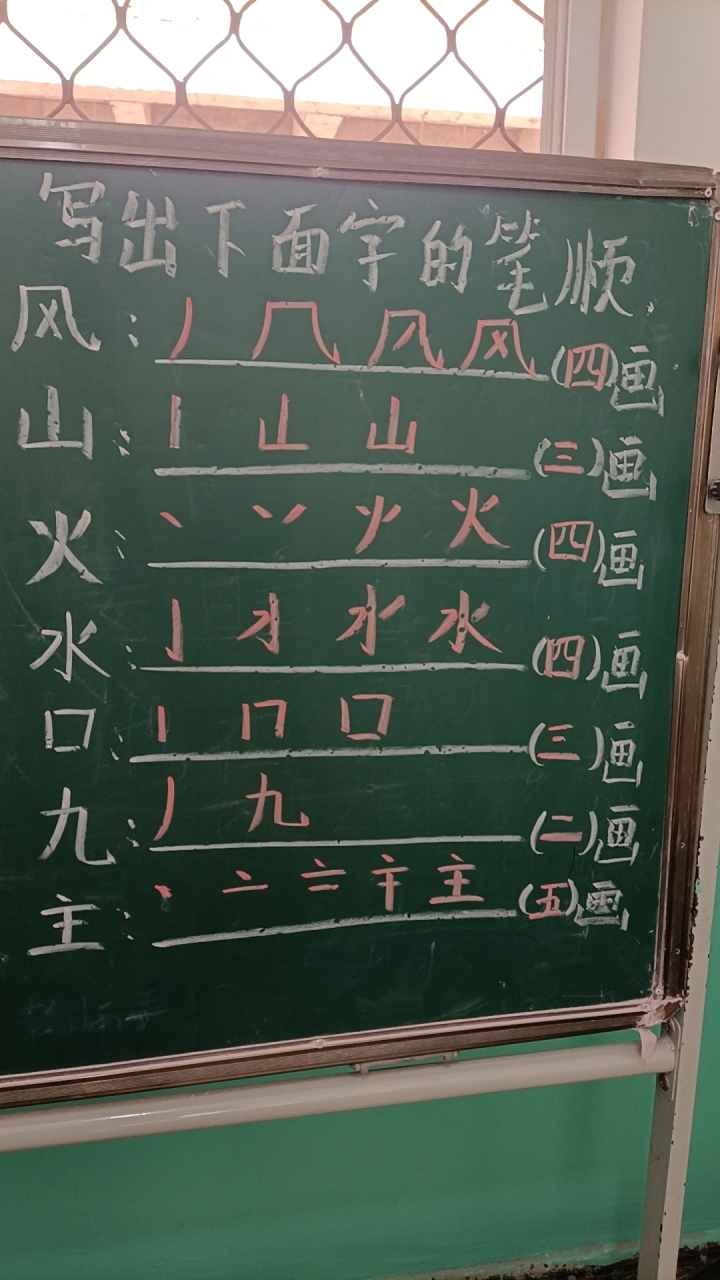 写出下面字的笔顺.
风: 丿 几 风 (四)画
山: 丨 山 (三)画
火: 丶 丷 火 (四)画
水: 亅 水 (四)画
口: 丨 冂 口 (三)画
九: 丿 九 (二)画
主: 丶 亠 主 (五)画